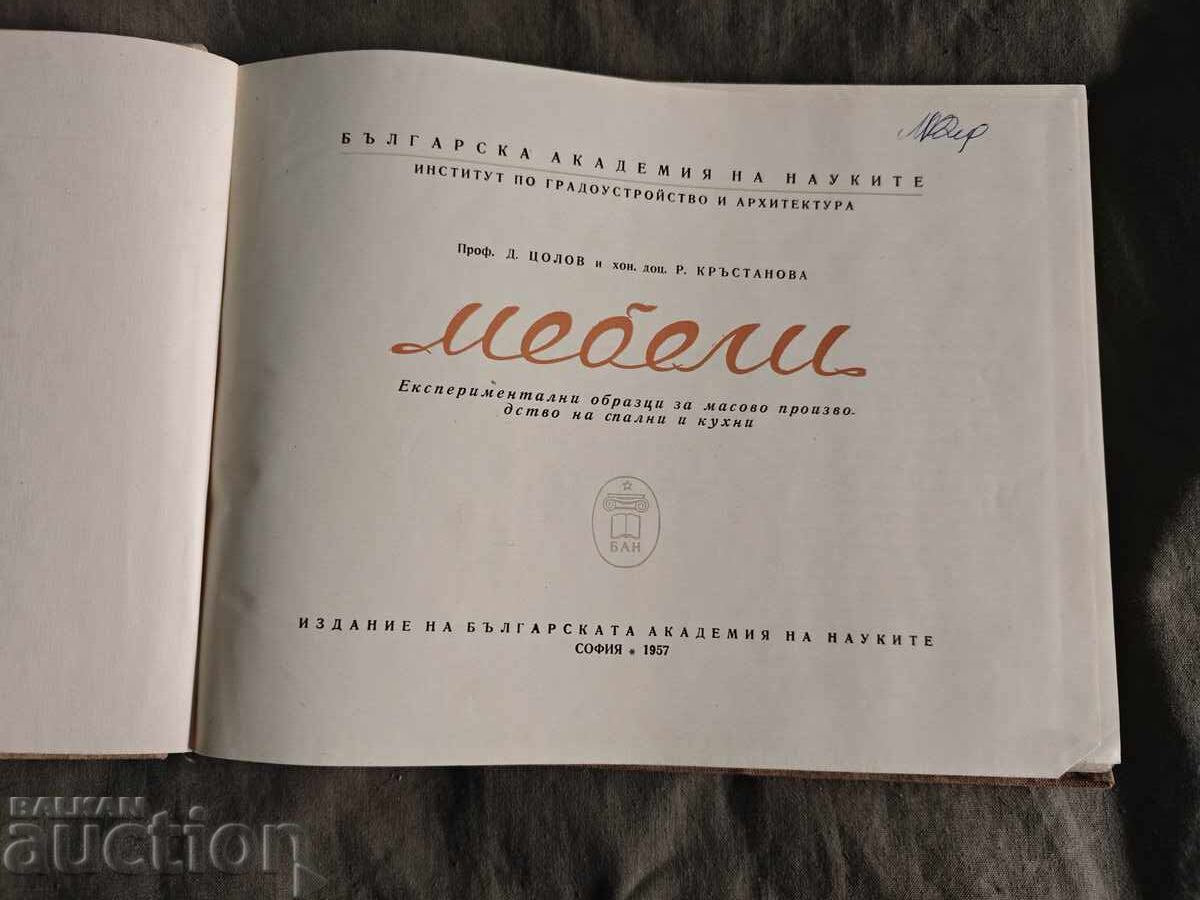 БЪЛГАРСКА АКАДЕМИЯ НА НАУКИТЕ
ИНСТИТУТ ПО ГРАДОУСТРОЙСТВО И АРХИТЕКТУРА
Проф. Д. ЦОЛОВ и хон. доц. Р. КРЪСТАНОВА
мебели
Експериментални образци за масово произво-
дство на спални и кухни
БАН
ИЗДАНИЕ НА БЪЛГАРСКАТА АКАДЕМИЯ НА НАУКИТЕ
СОФИЯ * 1957
BALKAN
auction